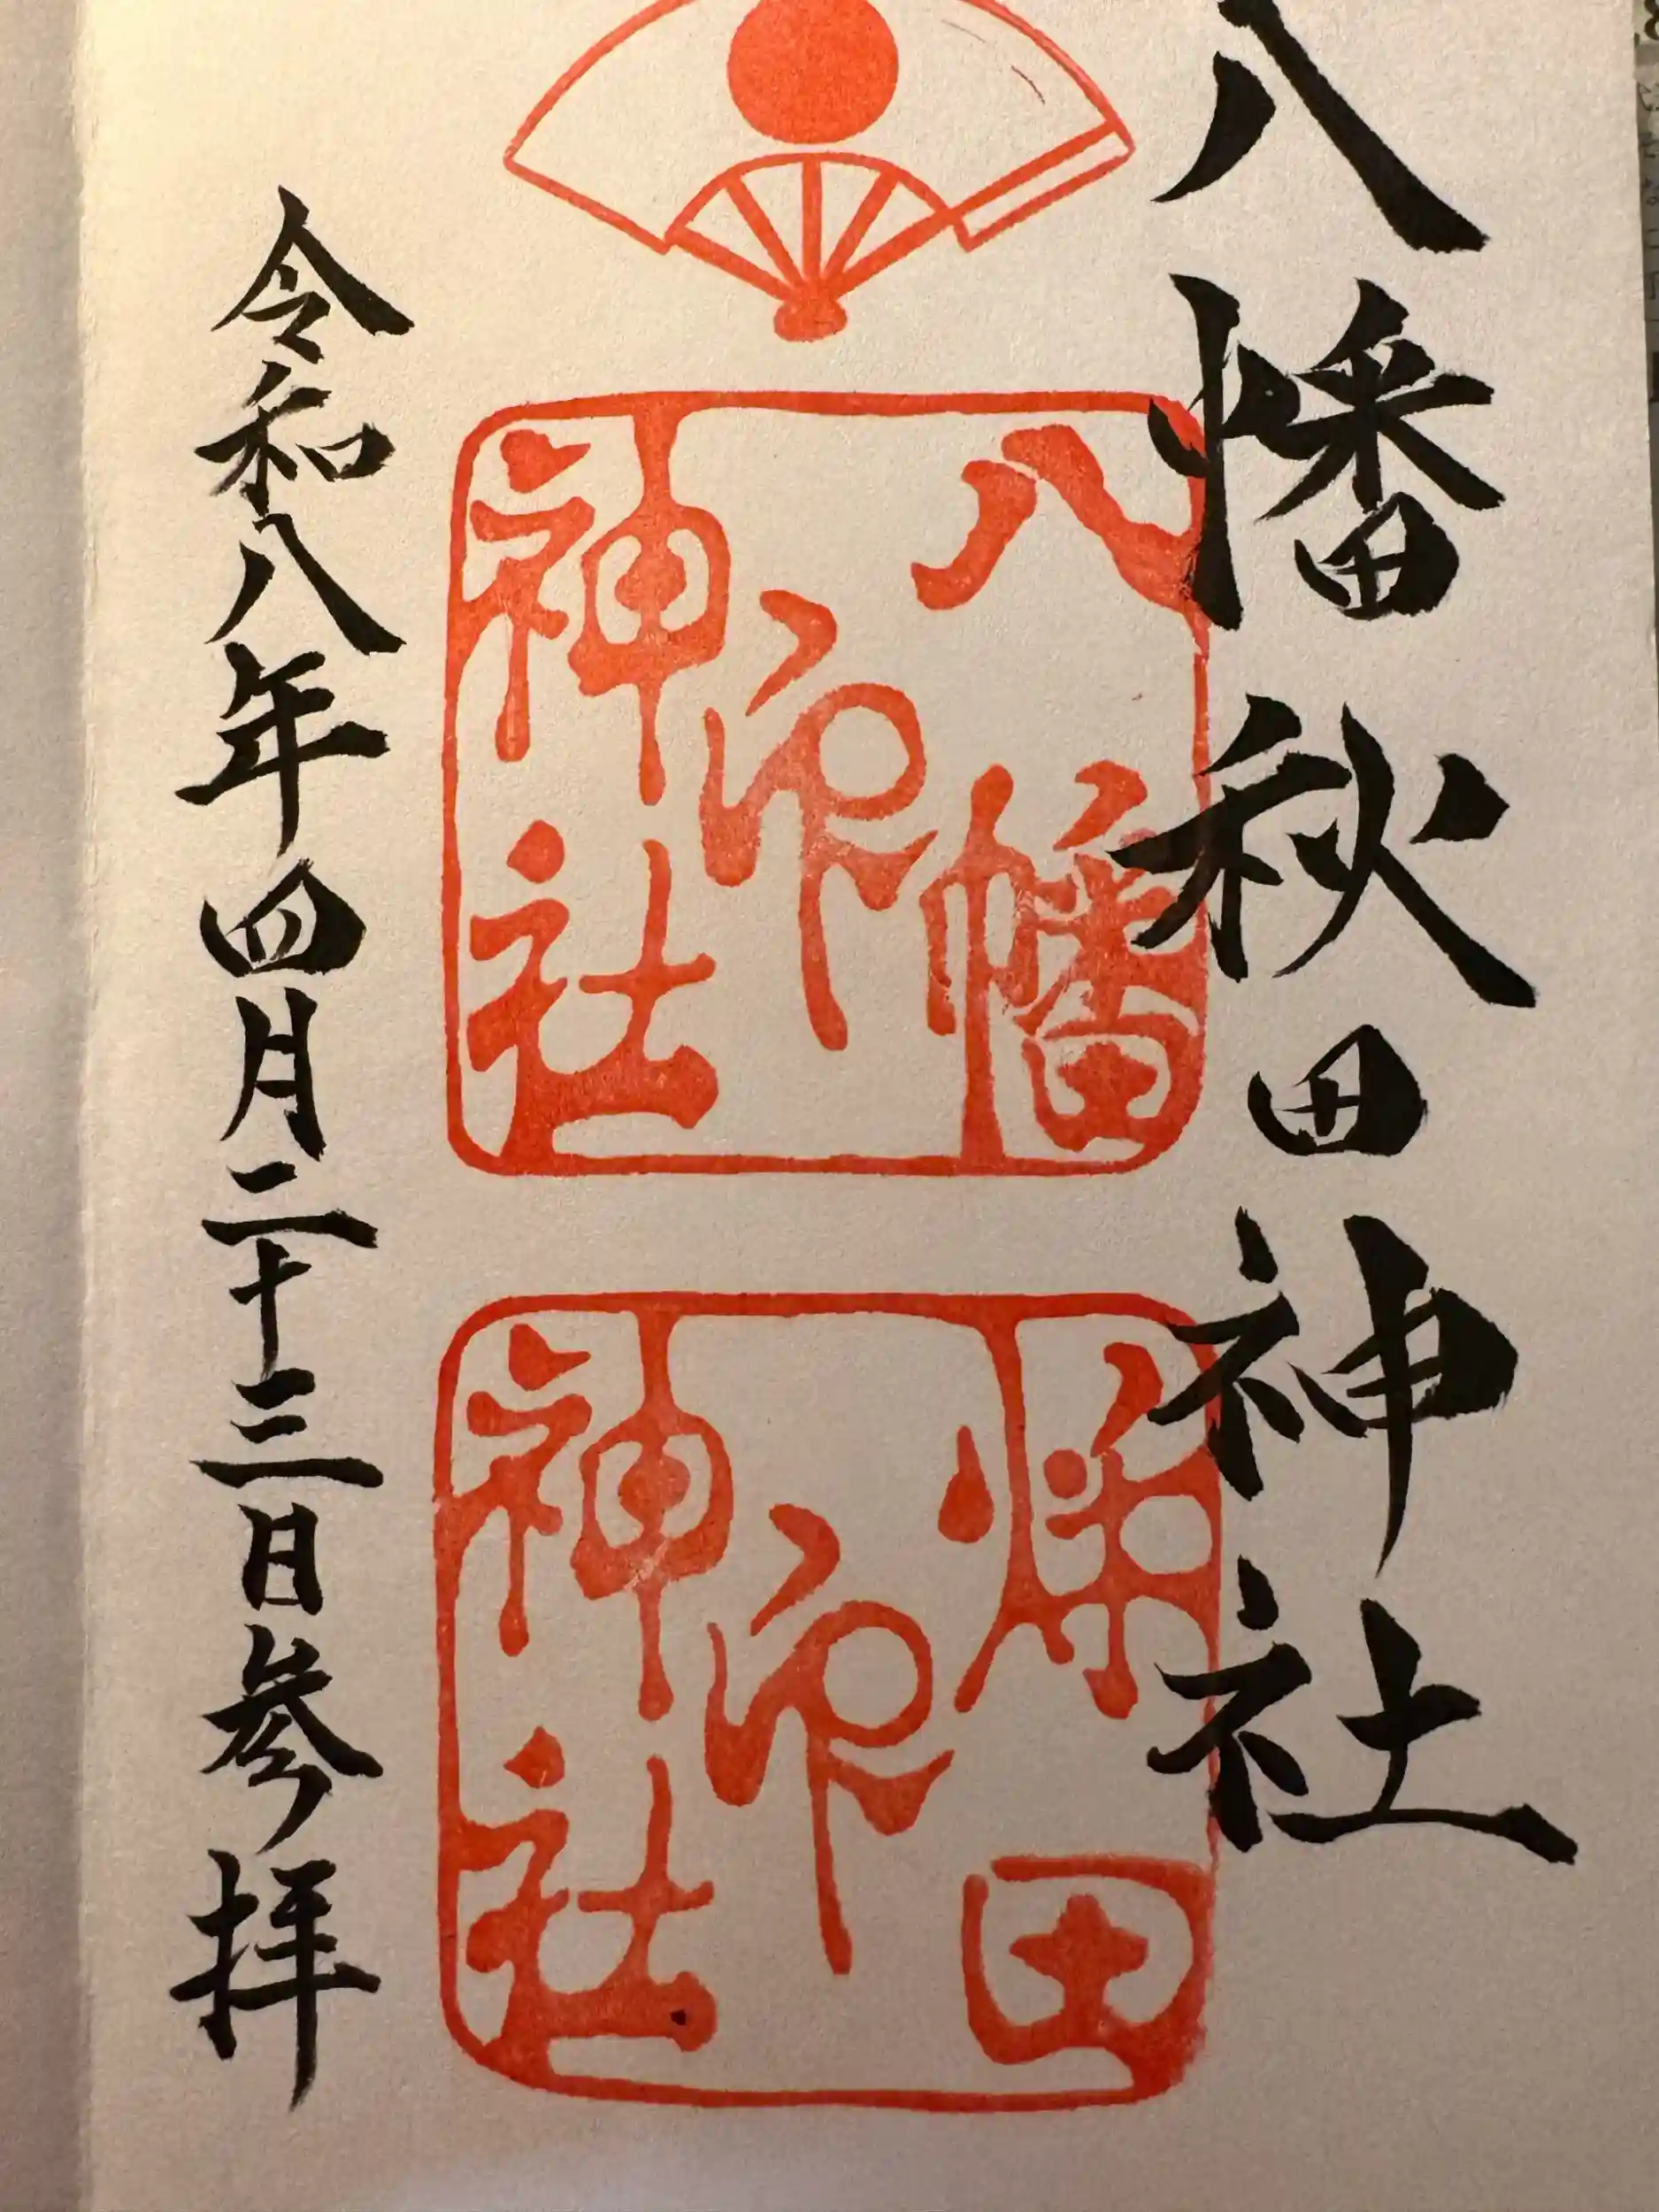 八幡秋田神社
八幡
印
神社
秋田
印
神社
令和八年四月二十三日参拝